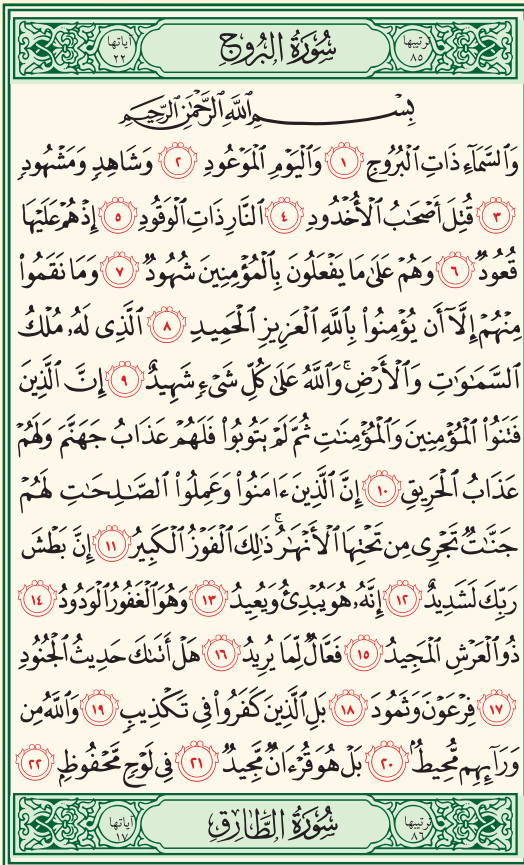 ترتيبها ٨٥ سُورَةُ البُرُوج آياتها ٢٢
بِسْمِ اللَّهِ الرَّحْمَٰنِ الرَّحِيمِ
وَٱلسَّمَآءِ ذَاتِ ٱلْبُرُوجِ ١ وَٱلْيَوْمِ ٱلْمَوْعُودِ ٢ وَشَاهِدٍ وَمَشْهُودٍ
٣ قُتِلَ أَصْحَٰبُ ٱلْأُخْدُودِ ٤ ٱلنَّارِ ذَاتِ ٱلْوَقُودِ ٥ إِذْ هُمْ عَلَيْهَا
قُعُودٌ ٦ وَهُمْ عَلَىٰ مَا يَفْعَلُونَ بِٱلْمُؤْمِنِينَ شُهُودٌ ٧ وَمَا نَقَمُوا۟
مِنْهُمْ إِلَّآ أَن يُؤْمِنُوا۟ بِٱللَّهِ ٱلْعَزِيزِ ٱلْحَمِيدِ ٨ ٱلَّذِى لَهُۥ مُلْكُ
ٱلسَّمَٰوَٰتِ وَٱلْأَرْضِ ۚ وَٱللَّهُ عَلَىٰ كُلِّ شَىْءٍ شَهِيدٌ ٩ إِنَّ ٱلَّذِينَ
فَتَنُوا۟ ٱلْمُؤْمِنِينَ وَٱلْمُؤْمِنَٰتِ ثُمَّ لَمْ يَتُوبُوا۟ فَلَهُمْ عَذَابُ جَهَنَّمَ وَلَهُمْ
عَذَابُ ٱلْحَرِيقِ ١٠ إِنَّ ٱلَّذِينَ ءَامَنُوا۟ وَعَمِلُوا۟ ٱلصَّٰلِحَٰتِ لَهُمْ
جَنَّٰتٌ تَجْرِى مِن تَحْتِهَا ٱلْأَنْهَٰرُ ۚ ذَٰلِكَ ٱلْفَوْزُ ٱلْكَبِيرُ ١١ إِنَّ بَطْشَ
رَبِّكَ لَشَدِيدٌ ١٢ إِنَّهُۥ هُوَ يُبْدِئُ وَيُعِيدُ ١٣ وَهُوَ ٱلْغَفُورُ ٱلْوَدُودُ ١٤
ذُو ٱلْعَرْشِ ٱلْمَجِيدُ ١٥ فَعَّالٌ لِّمَا يُرِيدُ ١٦ هَلْ أَتَىٰكَ حَدِيثُ ٱلْجُنُودِ
١٧ فِرْعَوْنَ وَثَمُودَ ١٨ بَلِ ٱلَّذِينَ كَفَرُوا۟ فِى تَكْذِيبٍ ١٩ وَٱللَّهُ مِن
وَرَآئِهِم مُّحِيطٌۢ ٢٠ بَلْ هُوَ قُرْءَانٌ مَّجِيدٌ ٢١ فِى لَوْحٍ مَّحْفُوظٍۭ ٢٢
ترتيبها ٨٦ سُورَةُ الطَّارِق آياتها ١٧